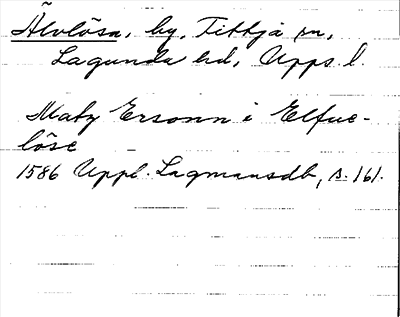 Älvlösa, by, Tittja sn,
Lagunda hd, Upps. l.
Maty Ersonn i Elfue-
löse
1586 Uppl. Lagmansdb, s. 161.